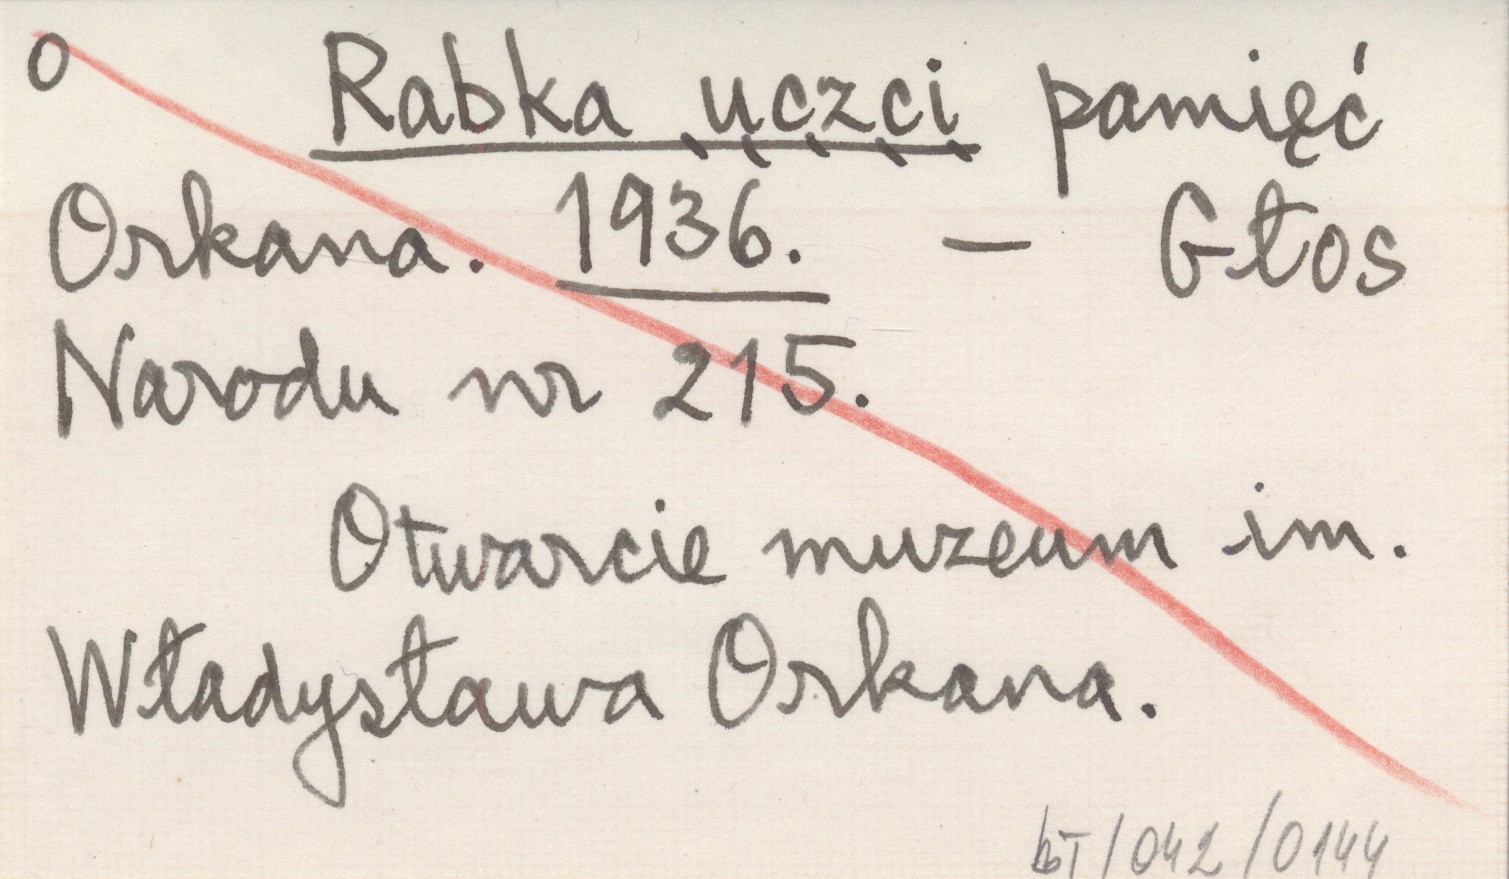 o Rabka uczci pamięć
Orkana. 1936. — Głos
Narodu nr 215.
Otwarcie muzeum im.
Władysława Orkana.
bT/042/0144